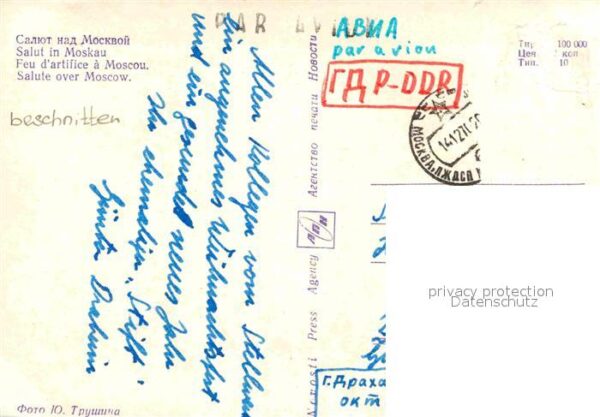 PAR AVION
АВИА
par avion
ГДР-DDR
Салют над Москвой
Salut in Moskau
Feu d'artifice à Moscou.
Salute over Moscow.
beschnitten
Тир. 100 000
Цена коп
Тип. 10
МОСКВА
Allen Kollegen vom Stellwerk
ein angenehmes Weihnachtsfest
und ein gesundes neues Jahr
Ihr ehemaliger „Stift"
Günter
Novosti Press Agency Агентство печати Новости
privacy protection
Datenschutz
Г. Драха
окт
Фото Ю. Трушина